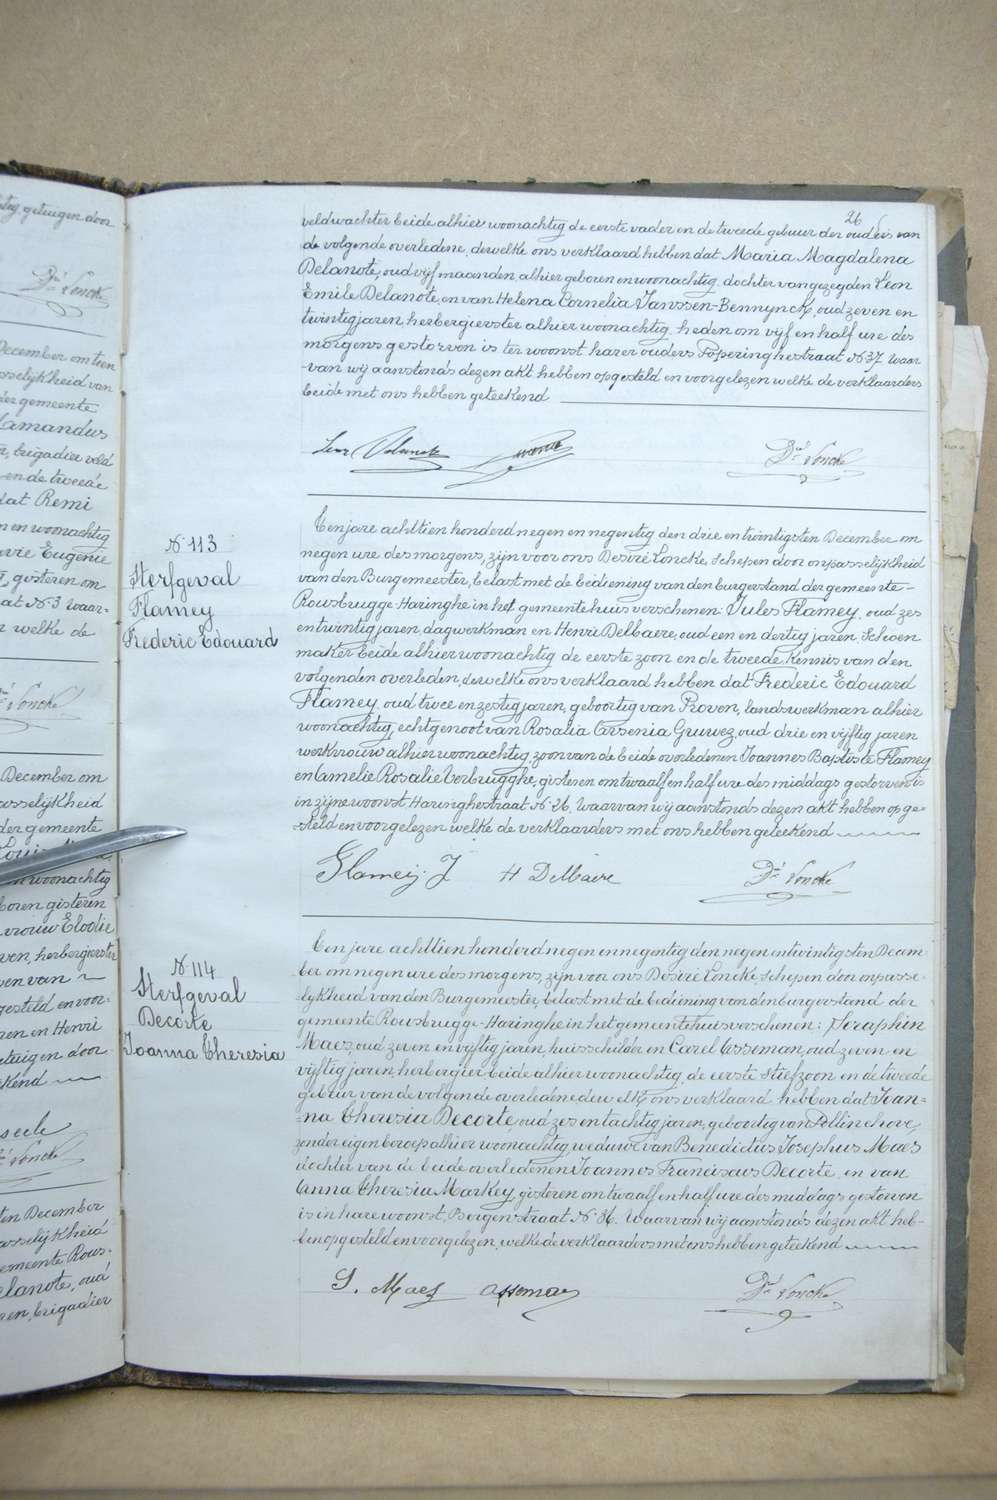 getuigen door
Dé Loncke
December om tien
sselijkheid van
der gemeente
Amandus
brigadier veld
en de tweede
dat Remi
en woonachtig
vie Eugenie
gisteren om
at N. 3 Waar-
welke de
Loncke
December om
asselijkheid
der gemeente
woonachtig
boren gisteren
vrouw Elodie
ven, herbergierster
en van
gesteld en voor-
ren en Henri
getuigen door
ekend
Loncke
ten December
asselijkheid
emeente Rous-
elanote, oud
ren, brigadier
26
veldwachter beide alhier woonachtig de eerste vader en de tweede gebuur der ouders van
de volgende overledene, dewelke ons verklaard hebben dat Maria Magdalena
Delanote, oud vijf maanden, alhier geboren en woonachtig, dochter van gezegden Leon
Emile Delanote, en van Helena Cornelia Janssen-Bennynck, oud zeven en
twintig jaren, herbergierster alhier woonachtig, heden om vijf en half ure des
morgens gestorven is ter woonst harer ouders Poperinghestraat N. 37. Waar
van wij aanstonds dezen akt hebben opgesteld en voorgelezen welke de verklaarders
beide met ons hebben geteekend
Leon Delanote
Dé Loncke
N. 113
Sterfgeval
Flamey
Frederic Edouard
Een jare achttien honderd negen en negentig den drie en twintigsten December om
negen ure des morgens, zijn voor ons Desiré Loncke, Schepen door onpasselijkheid
van den Burgemeester, belast met de bediening van den burgerstand der gemeente
Rousbrugge-Haringhe in het gemeentehuis verschenen: Jules Flamey, oud zes
en twintig jaren, dagwerkman en Henri Delbaere, oud een en dertig jaren, Schoen
maker beide alhier woonachtig de eerste zoon en de tweede kennis van den
volgenden overleden, dewelke ons verklaard hebben dat Frederic Edouard
Flamey, oud twee en zestig jaren, geboortig van Proven, landswerkman alhier
woonachtig, echtgenoot van Rosalia Arsenia Gruwez, oud drie en vijftig jaren
werkvrouw alhier woonachtig, zoon van de beide overledenen Joannes Baptiste Flamey
en Amelie Rosalie Verbrugghe, gisteren om twaalf en half ure des middags gestorven is
in zijne woonst Haringhestraat N. 26. Waarvan wij aanstonds dezen akt hebben opge-
steld en voorgelezen welke de verklaarders met ons hebben geteekend
Flameij. J
H Delbaere
Dé Loncke
N. 114
Sterfgeval
Decorte
Joanna Theresia
Een jare achttien honderd negen en negentig den negen en twintigsten Decem-
ber om negen ure des morgens, zijn voor ons Desiré Loncke, Schepen door onpasse-
lijkheid van den Burgemeester, belast met de bediening van den burgerstand der
gemeente Rousbrugge-Haringhe in het gemeentehuis verschenen: Seraphin
Maes, oud zeven en vijftig jaren, huisschilder en Carel Asseman, oud zeven en
vijftig jaren, herbergier beide alhier woonachtig, de eerste stiefzoon en de tweede
gebuur van de volgende overledene dewelke ons verklaard hebben dat Joan-
na Theresia Decorte, oud zes en tachtig jaren, geboortig van Pollinchove,
zonder eigen beroep alhier woonachtig, weduwe van Benedictus Josephus Maes
dochter van de beide overledenen Joannes Franciscus Decorte en van
Anna Theresia Markey, gisteren om twaalf en half ure des middags gestorven
is in hare woonst, Bergenstraat N. 86. Waarvan wij aanstonds dezen akt heb-
ben opgesteld en voorgelezen, welke de verklaarders met ons hebben geteekend
S. Maes
Asseman
Dé Loncke